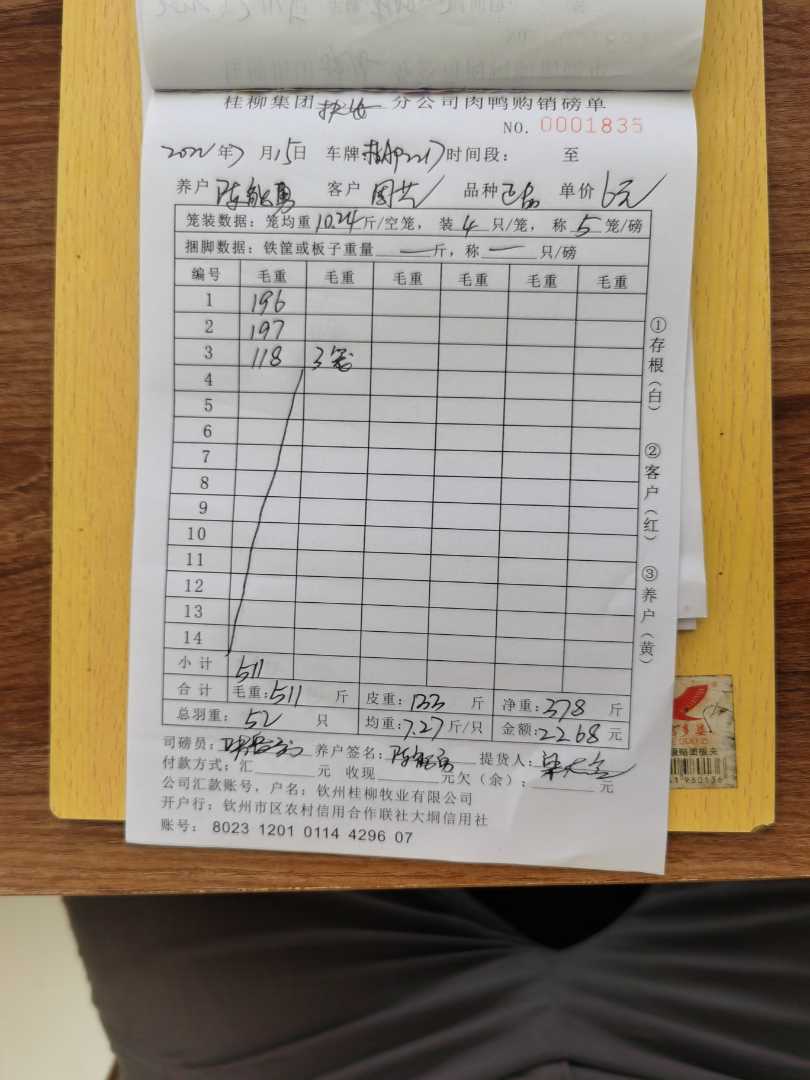 桂柳集团 分公司肉鸭购销磅单
NO. 0001835
2022年7月15日 车牌 时间段: 至
养户 陈能勇 客户 周艺 品种 单价 6元
笼装数据:笼均重10.24斤/空笼,装4只/笼,称5笼/磅
捆脚数据:铁筐或板子重量 — 斤,称 — 只/磅
编号 毛重 毛重 毛重 毛重 毛重 毛重
1 196
2 197
3 118 3笼
4
5
6
7
8
9
10
11
12
13
14
小计 511
合计 毛重:511 斤 皮重:133 斤 净重:378 斤
总羽重: 52 只 均重:7.27斤/只 金额:2268元
司磅员: 养户签名:陈能勇 提货人:
付款方式:汇 元 收现 元欠(余): 元
公司汇款账号,户名:钦州桂柳牧业有限公司
开户行:钦州市区农村信用合作联社大垌信用社
账号: 8023 1201 0114 4296 07
①存根(白) ②客户(红) ③养户(黄)